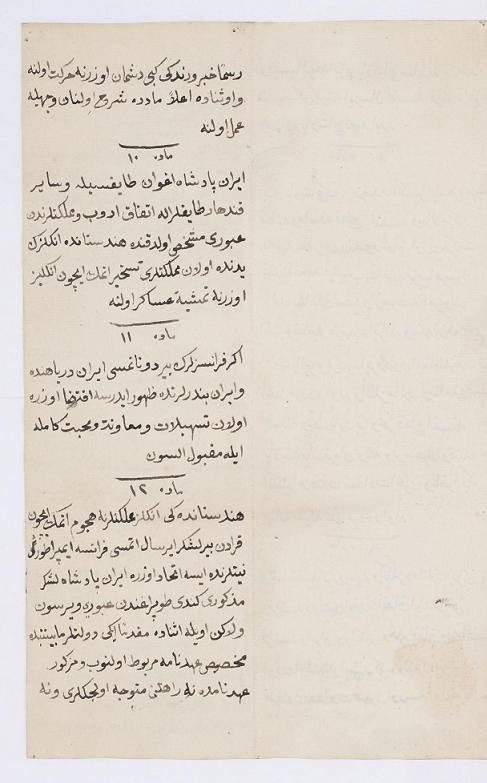 رسما خبر ویرلدکی کبی دشمان اوزرنه حرکت اولنه
و اوثناده اعلا مادده شروح اولنان وجهیله
عمل اولنه
ماده ١٠
ایران پادشاه اغوان طایفسیله و سایر
قندهار طایفلرله اتفاق ادوب و مملکتلرندن
عبوری مشخص اولدقنده هندستانده انکلزک
یدنده اولان مملکتلری تسخیر اتمک ایچون انکلیز
اوزرنه تمشیة عساکر اولنه
ماده ١١
اکر فرانسزلرک بیر دونانمسی ایران دریاهنده
و ایران بندرلرنده ظهور ایدرسه اقتضا اوزره
اولان تسهیلات و معاونت و محبت کامله
ایله مقبول السون
ماده ١٢
هندستانده کی انکلز مملکتلرنه هجوم اتمک ایچون
قرادن بیر لشکر ایرسال اتمسی فرانسه ایمپراطورنکی
نیتلرنده ایسه اتحاد اوزره ایران پادشاه لشکر
مذکوری کندی طوپراغندن عبوری ویرسون
ولاکن اویله اثناده مقدما ایکی دولتلر مابیننده
مخصوص عهدنامه مربوط اولنوب و مزکور
عهدنامده نه راهلنی متوجه اولجکلری و نه